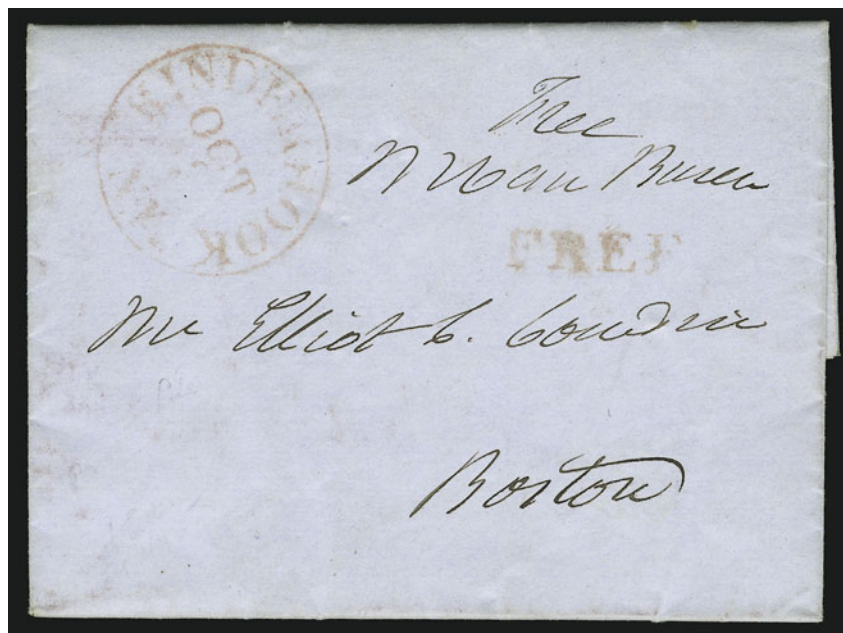 KINDERHOOK N.Y.
OCT
Free
M Van Buren
FREE
Mr Elliot C. Cowdin
Boston